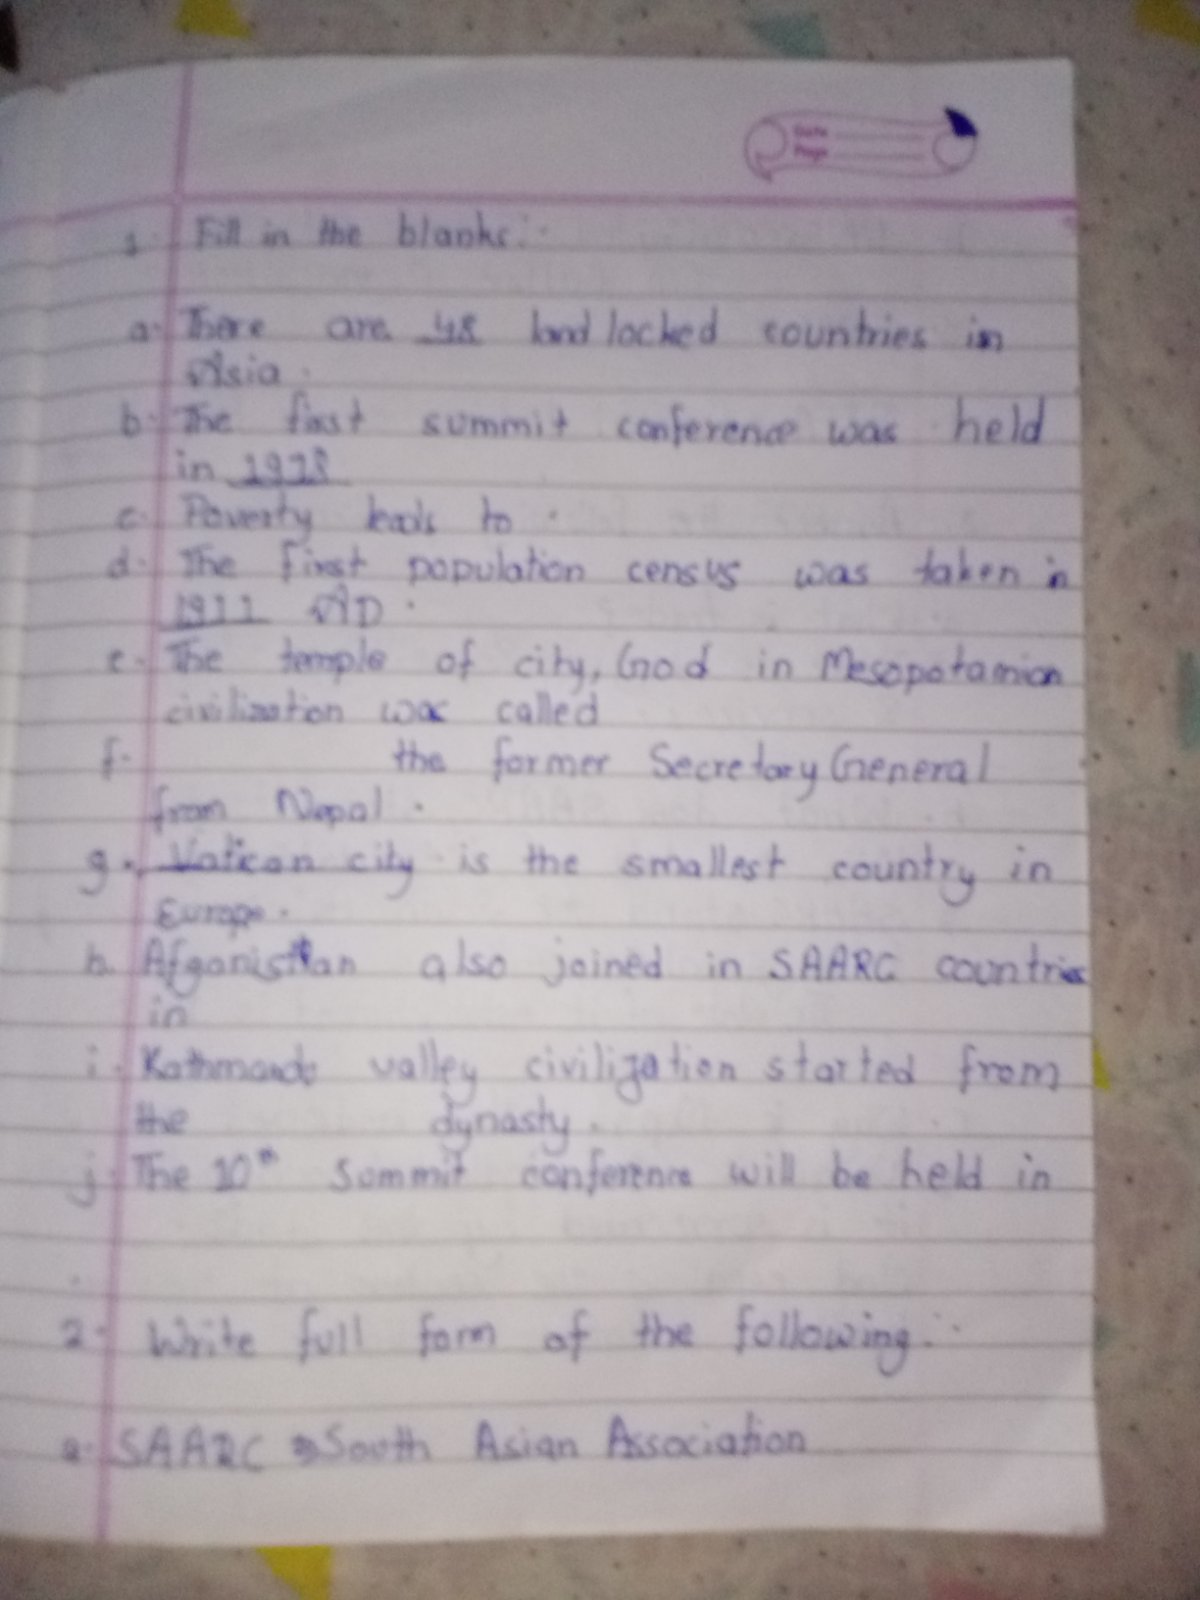 Date
Page
1. Fill in the blanks:-
a. There are 48 land locked countries in
Asia.
b. The first summit conference was held
in 1978
c. Poverty leads to .
d. The first population census was taken in
1911 AD.
e. The temple of city, God in Mesopotamian
civilization was called
f. the former Secretary General
from Nepal.
g. Vatican city is the smallest country in
Europe.
h. Afganistan also joined in SAARC countries
in
i. Kathmandu valley civilization started from
the dynasty.
j. The 10th Summit conference will be held in
2. Write full form of the following:-
a. SAARC → South Asian Association